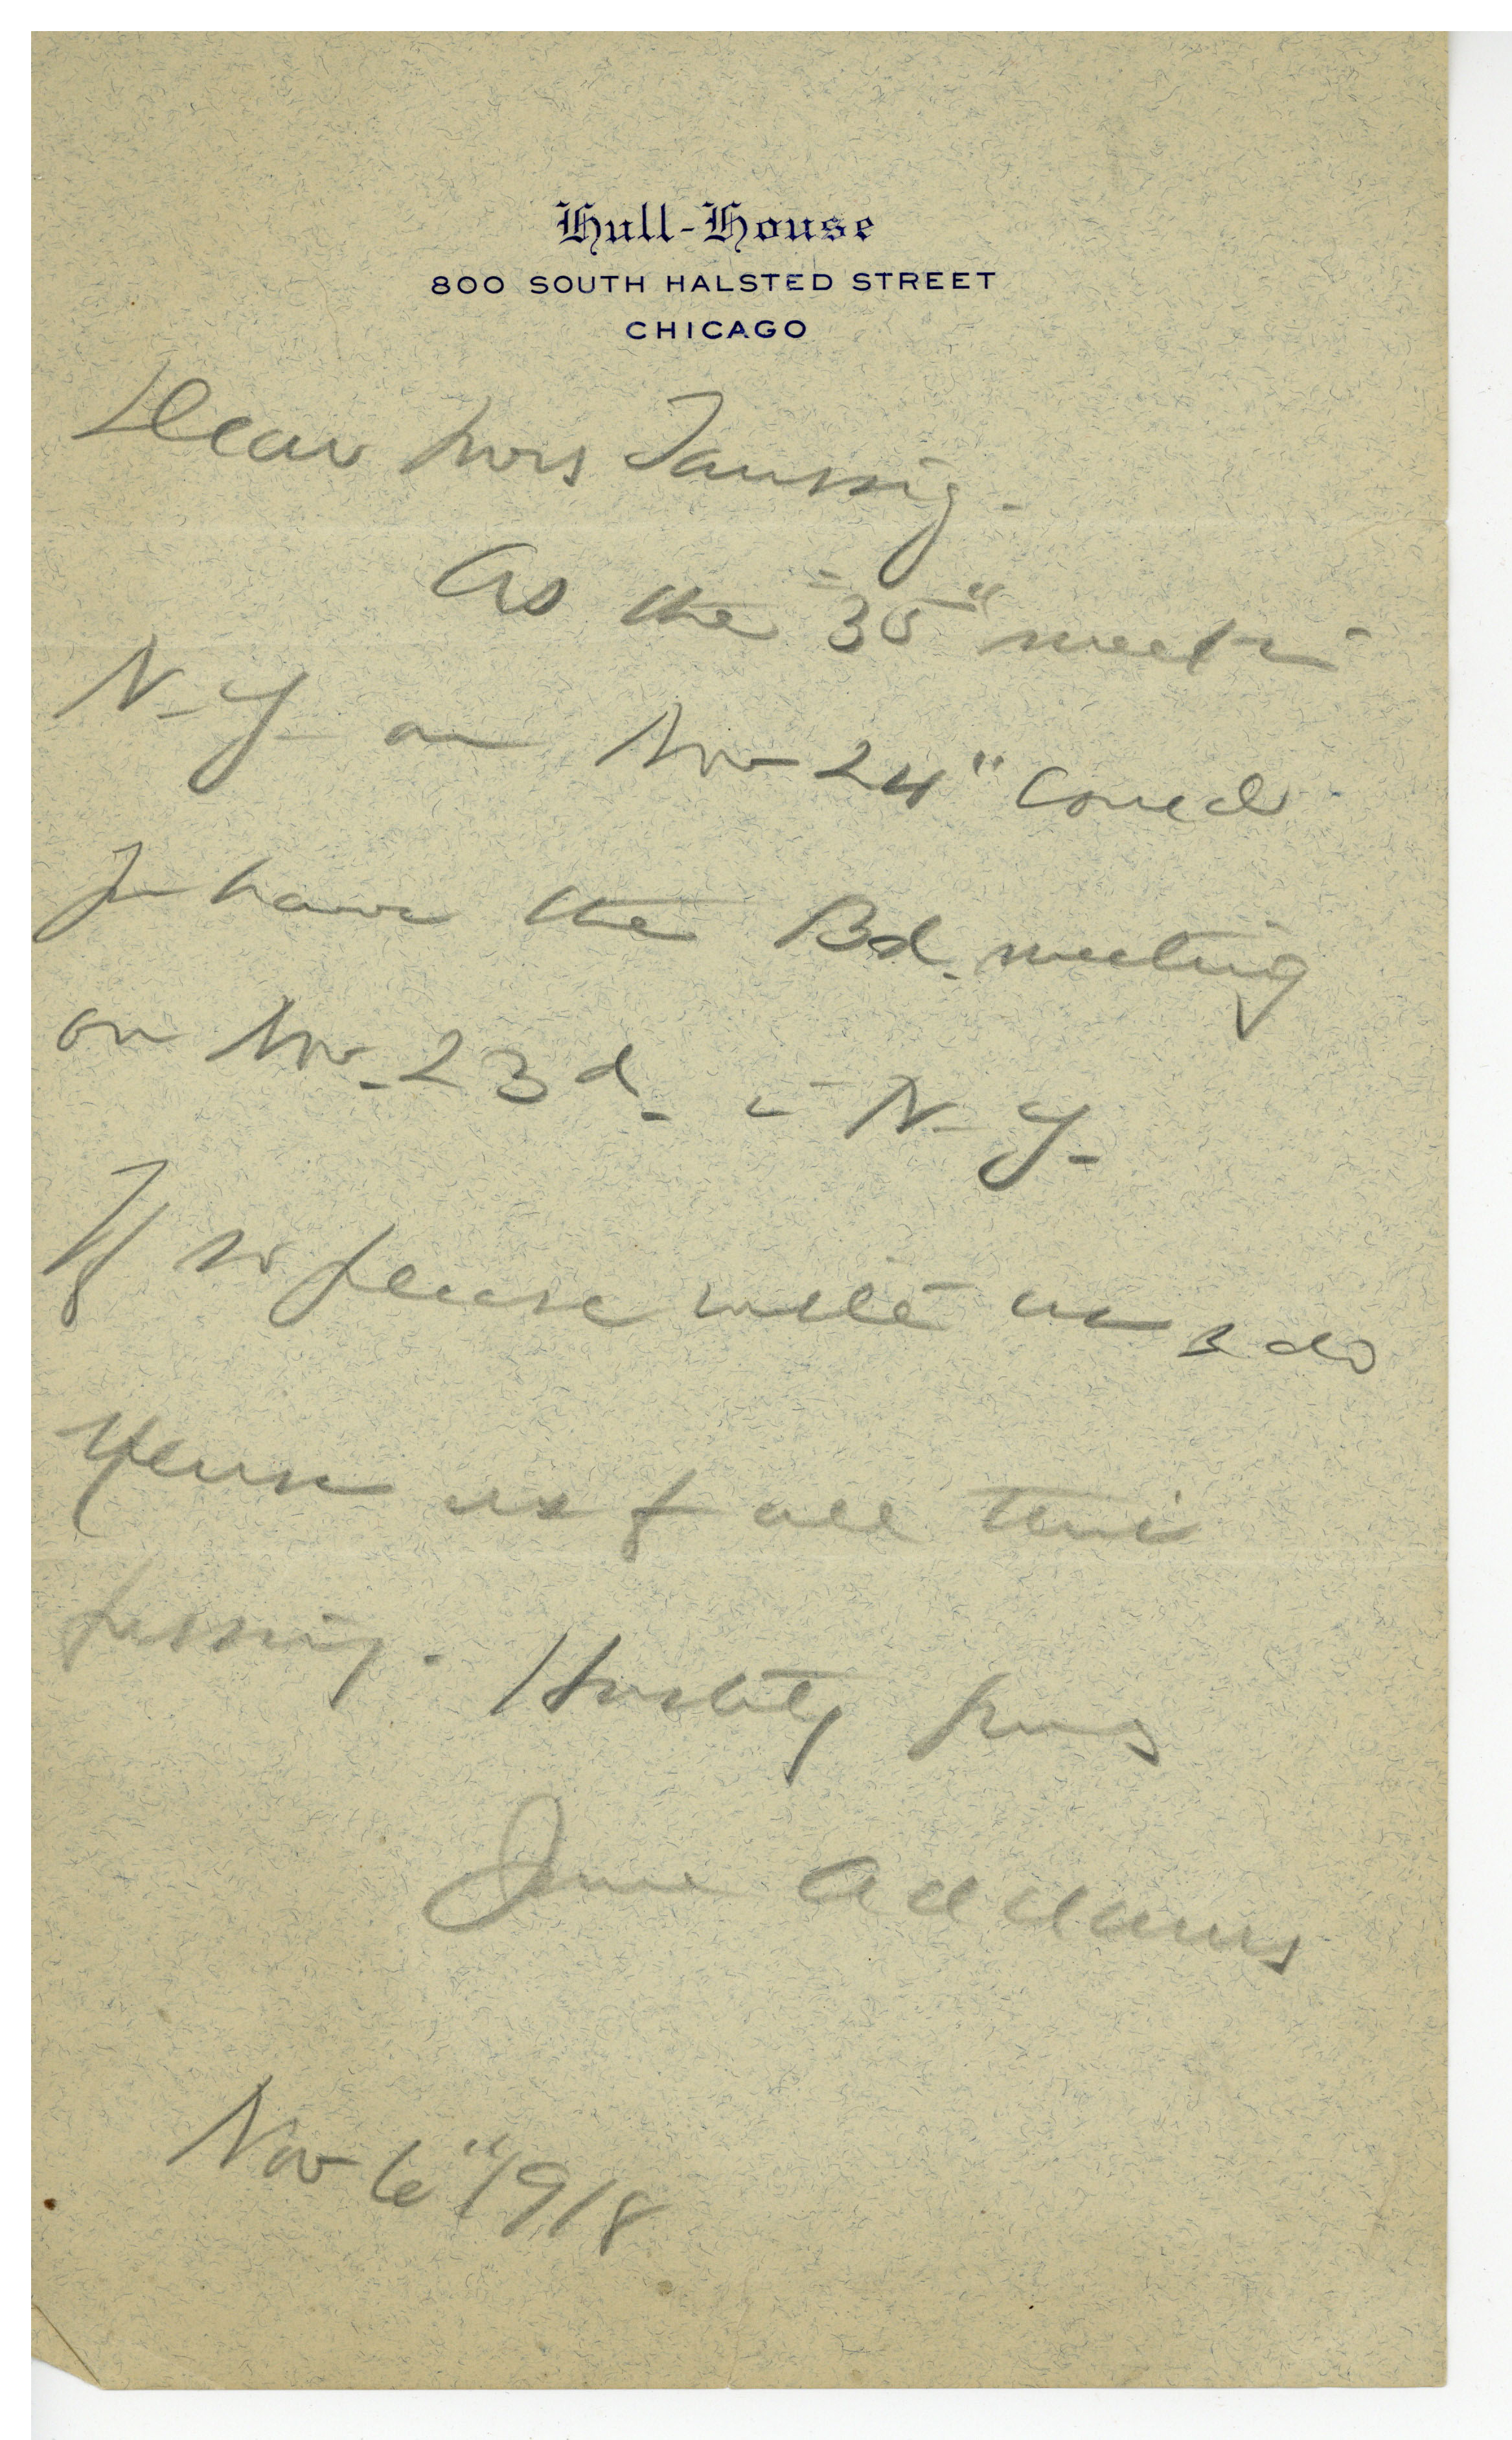 Hull-House
800 SOUTH HALSTED STREET
CHICAGO
Dear Mrs Taussig -
As the "35" meet in
N-Y- on Nov 24" could
you have the Bd. meeting
on Nov. 23d. in N-Y-
If so please write me & do
please all this
fussing. Heartily yours
Jane Addams
Nov 6" 1918